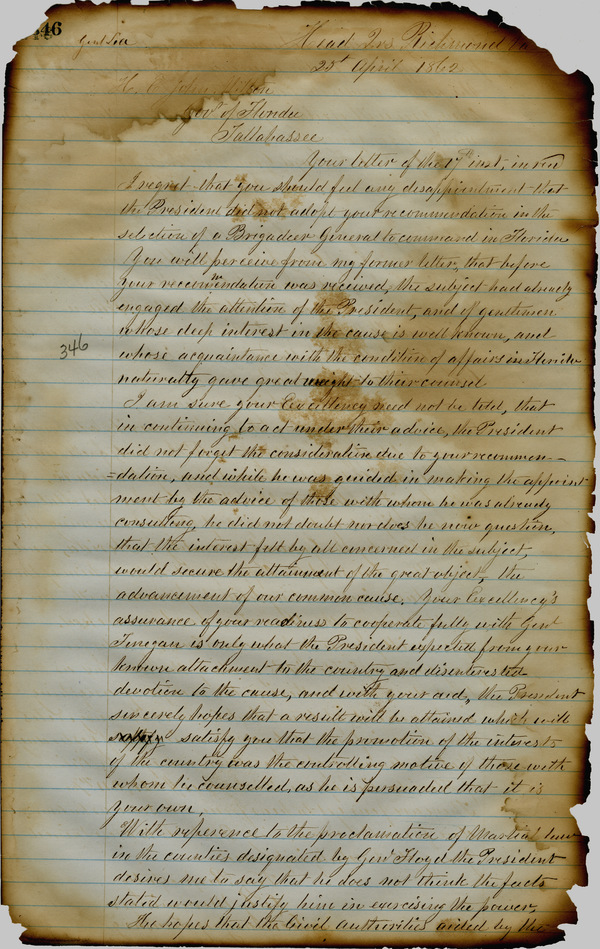 46
Genl Lee
Head Qrs Richmond Va
25th April 1862
H. E. John Milton
Gov. of Florida
Tallahassee
Your letter of the 17th inst, is recd
I regret that you should feel any disappointment that
the President did not adopt your recommendation in the
selection of a Brigadeer General to command in Florida
You will perceive from my former letter, that before
your recommendation was received, the subject had already
engaged the attention of the President, and of gentlemen
whose deep interest in the cause is well known, and
346
whose acquaintance with the condition of affairs in Florida
naturally gave great weight to their counsel
I am sure your Excellency need not be told, that
in continuing to act under their advice, the President
did not forget the consideration due to your recommen=
=dation, and while he was guided in making the appoint
ment by the advice of those with whom he was already
consulting, he did not doubt nor does he now question,
that the interest felt by all concerned in the subject,
would secure the attainment of the great object, the
advancement of our common cause. Your Excellency's
assurance of your readiness to cooperate fully with Genl
Finegan is only what the President expected from your
known attachment to the country and disinterested
devotion to the cause, and with your aid, the President
sincerely hopes that a result will be attained which will
satisfy you that the promotion of the interests
of the country was the controlling motive of those with
whom he counselled, as he is persuaded that it is
your own.
With reference to the proclamation of Martial law
in the counties designated by Genl Floyd the President
desires me to say that he does not think the facts
stated would justify him in exercising the power.
He hopes that the Civil authorities aided by the